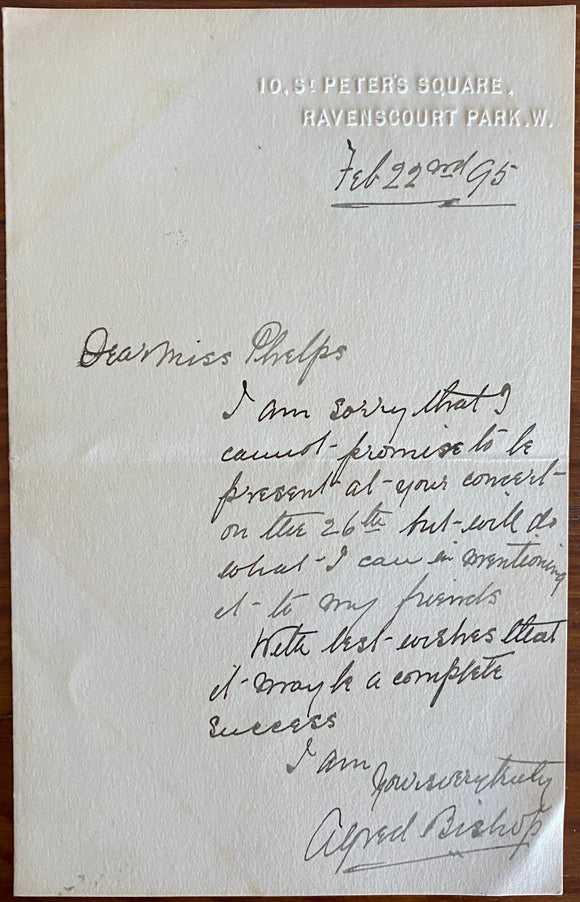 10, St PETER'S SQUARE,
RAVENSCOURT PARK. W.
Feb 22nd 95
Dear Miss Phelps
I am sorry that I
cannot promise to be
present at your concert
on the 26th but will do
what I can in mentioning
it to my friends
With best wishes that
it may be a complete
success
I am
Yours very truly
Alfred Bishop